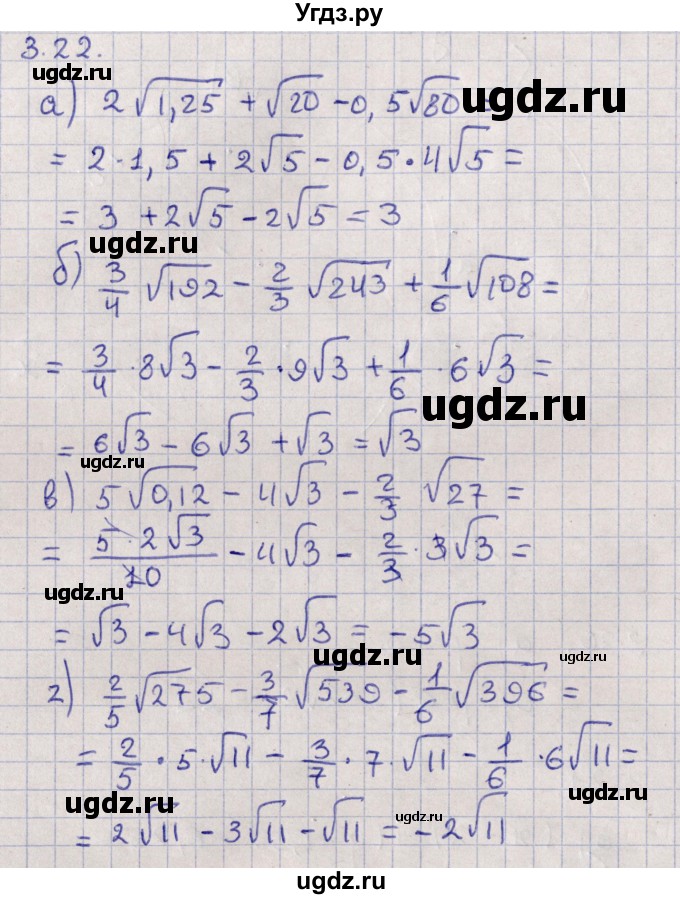 Угдз.ру
3.22.
а) 2√1,25 + √20 - 0,5√80 =
= 2·1,5 + 2√5 - 0,5·4√5 =
= 3 + 2√5 - 2√5 = 3
ugdz.ru
ugdz.ru
б) 3/4 √192 - 2/3 √243 + 1/6 √108 =
ugdz.ru
= 3/4 · 8√3 - 2/3 · 9√3 + 1/6 · 6√3 =
ugdz.ru
= 6√3 - 6√3 + √3 = √3
ugdz.ru
в) 5√0,12 - 4√3 - 2/3 √27 =
= 5·2√3/10 - 4√3 - 2/3 · 3√3 =
ugdz.ru
= √3 - 4√3 - 2√3 = -5√3
ugdz.ru
ugdz.ru
г) 2/5 √275 - 3/7 √539 - 1/6 √396 =
= 2/5 · 5·√11 - 3/7 · 7·√11 - 1/6 · 6√11 =
ugdz.ru
ugdz.ru
ugdz.ru
= 2√11 - 3√11 - √11 = -2√11
ugdz.ru